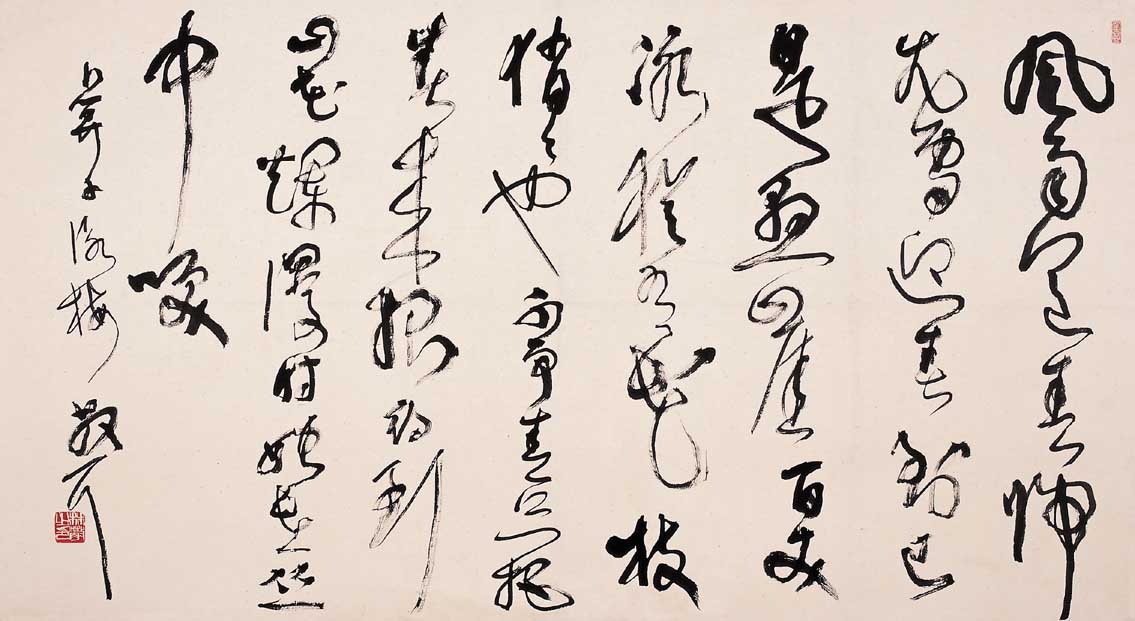 風雨送春歸
飛雪迎春到已
是懸崖百丈
冰猶有花枝
俏〻也不爭春只把
春來報待到
山花爛漫時她在叢
中笑
卜算子詠梅 散耳